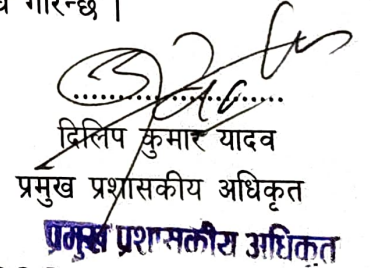 गरिन्छ ।
दिलिप कुमार यादव
प्रमुख प्रशासकीय अधिकृत
प्रमुख प्रशासकीय अधिकृत